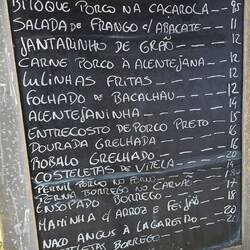 BITOQUE PORCO NA CAÇAROLA - 9,5
SALADA DE FRANGO C/ ABACATE - 11
JANTARINHO DE GRÃO - 12
CARNE PORCO À ALENTEJANA - 12
LULINHAS FRITAS - 12
FOLHADO DE BACALHAU - 12
ALENTEJANINHA - 15
ENTRECOSTO DE PORCO PRETO - 16
DOURADA GRELHADA - 16
ROBALO GRELHADO - 20
COSTELETAS DE VITELA - 14
PERNIL PORCO NO FORNO - 18
PERNA BORREGO NO CARVÃO - 17
ENSOPADO BORREGO - 18
MAMINHA C/ ARROZ E FEIJÃO - 20
NACO ANGUS À LAGAREIRO
COSTELETAS BORREGO